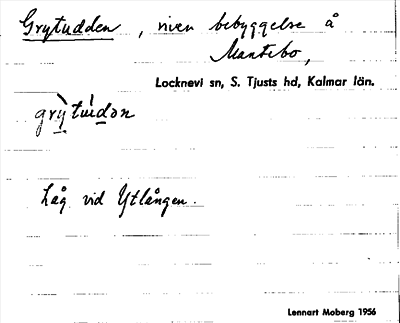 Grytudden, riven bebyggelse å
Mantebo,
Locknevi sn, S. Tjusts hd, Kalmar län.
grỳ̠tu̍d̠ən
Låg vid Ytlången.
Lennart Moberg 1956